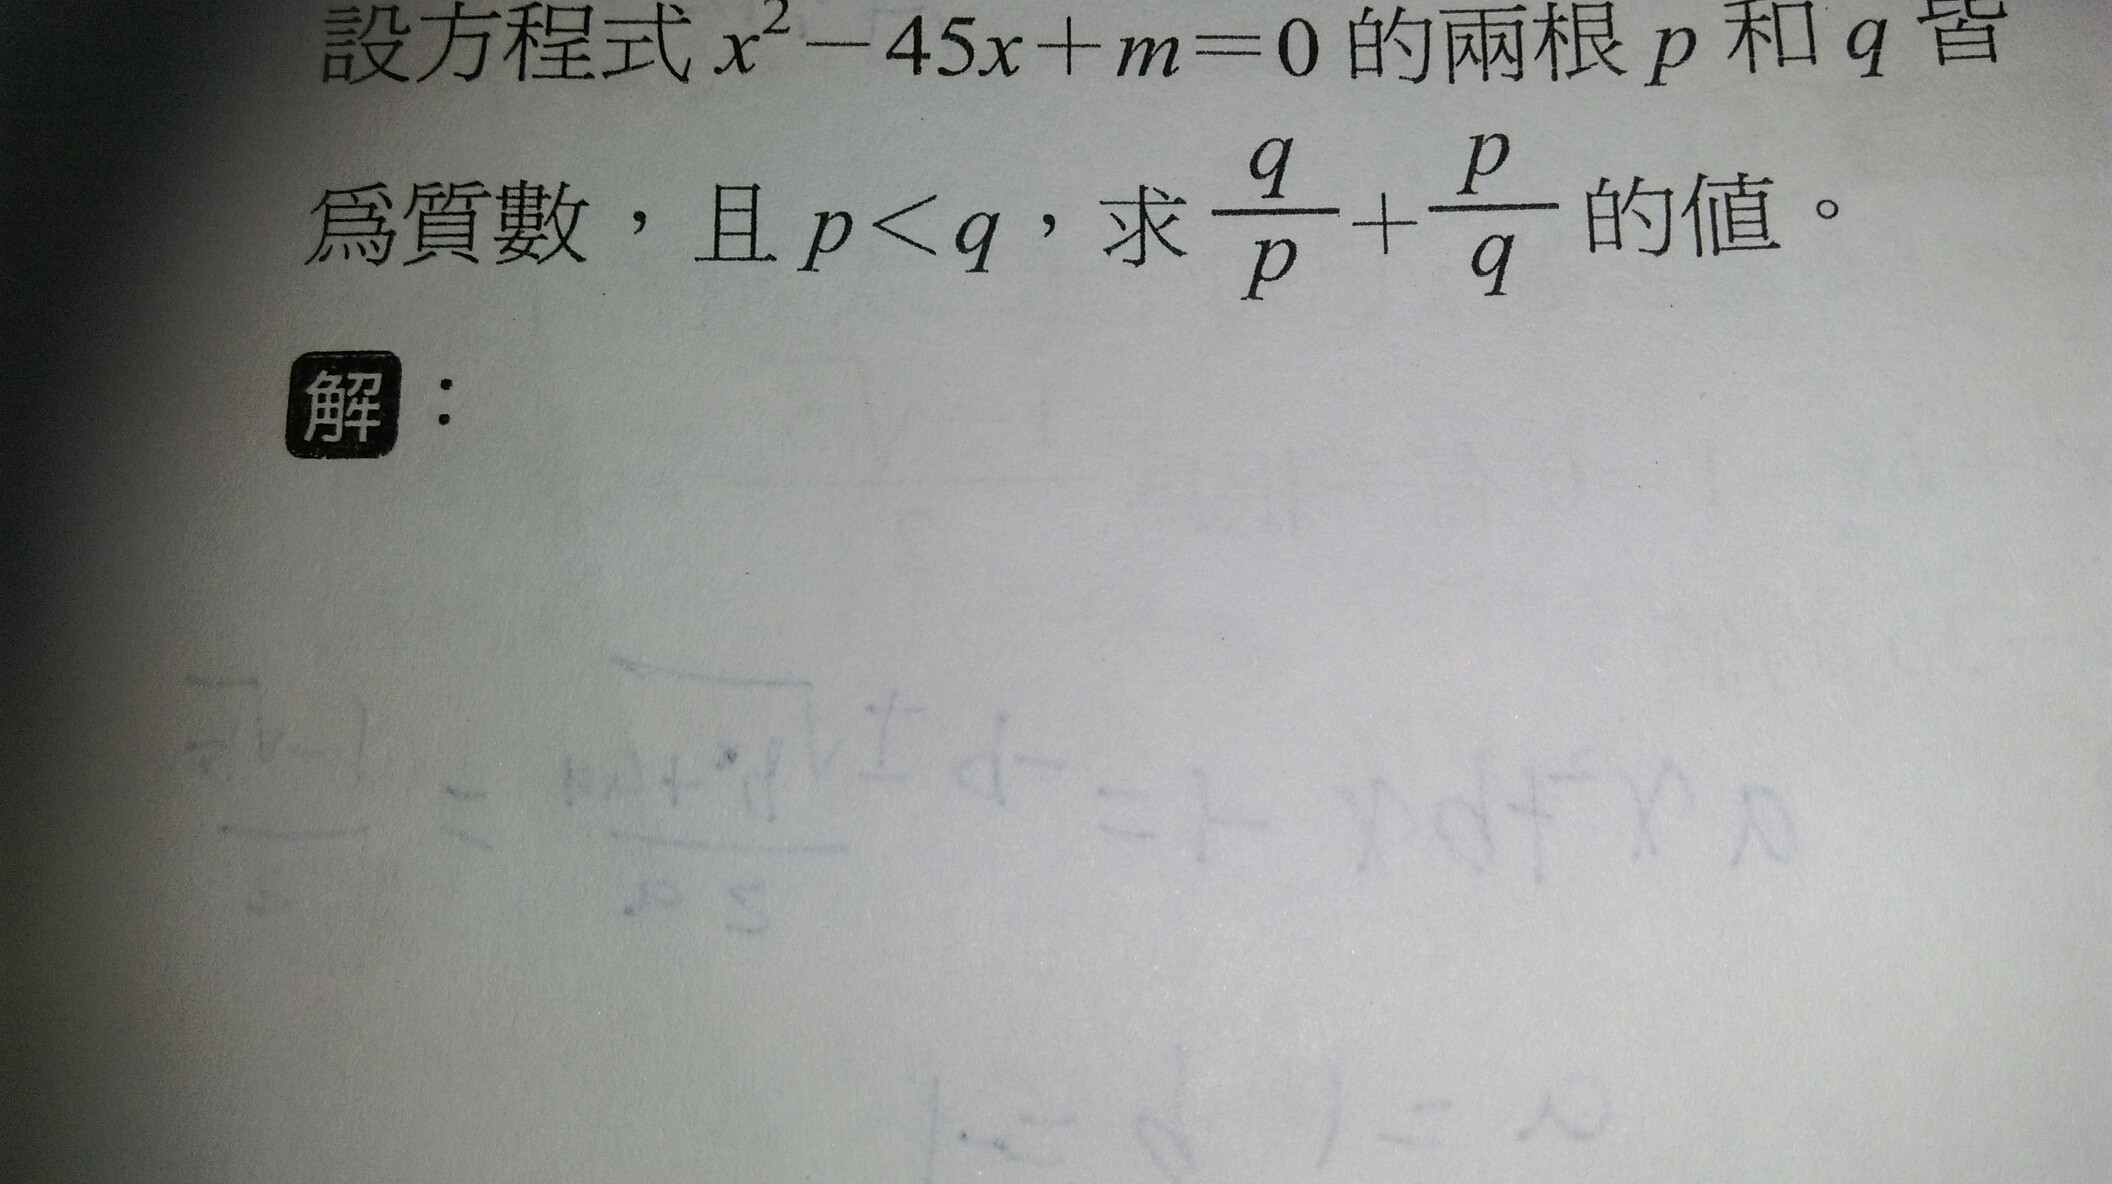 設方程式 x²－45x＋m＝0 的兩根 p 和 q 皆
為質數，且 p＜q，求 q/p＋p/q 的值。
解：